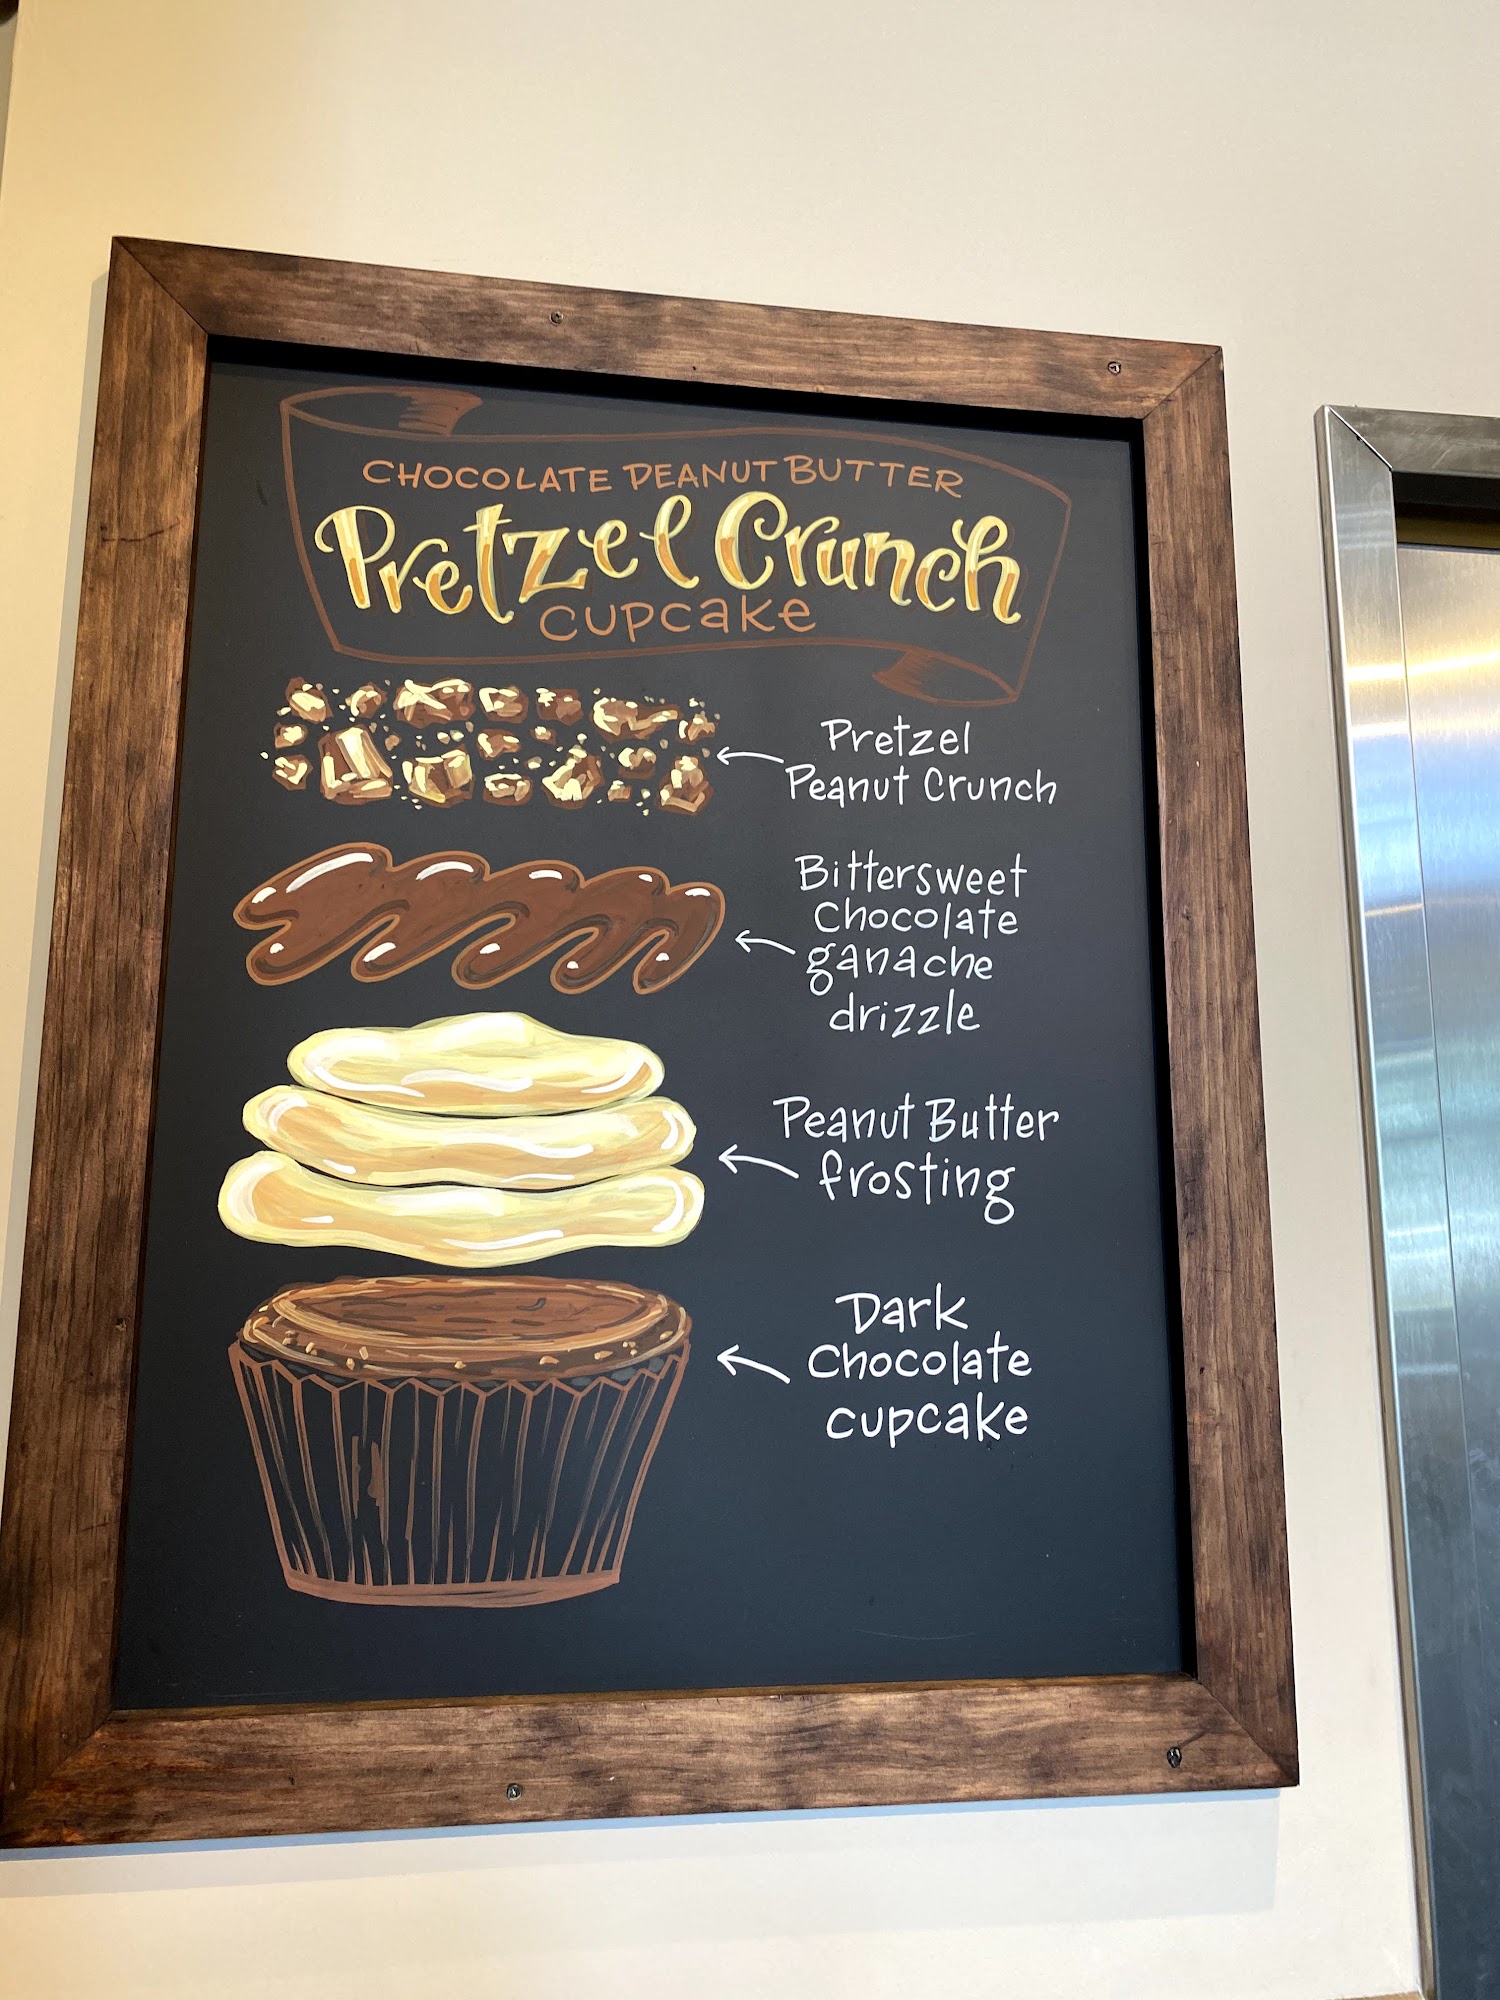 CHOCOLATE PEANUT BUTTER
Pretzel Crunch
cupcake
Pretzel
Peanut Crunch
Bittersweet
Chocolate
ganache
drizzle
Peanut Butter
frosting
Dark
Chocolate
cupcake